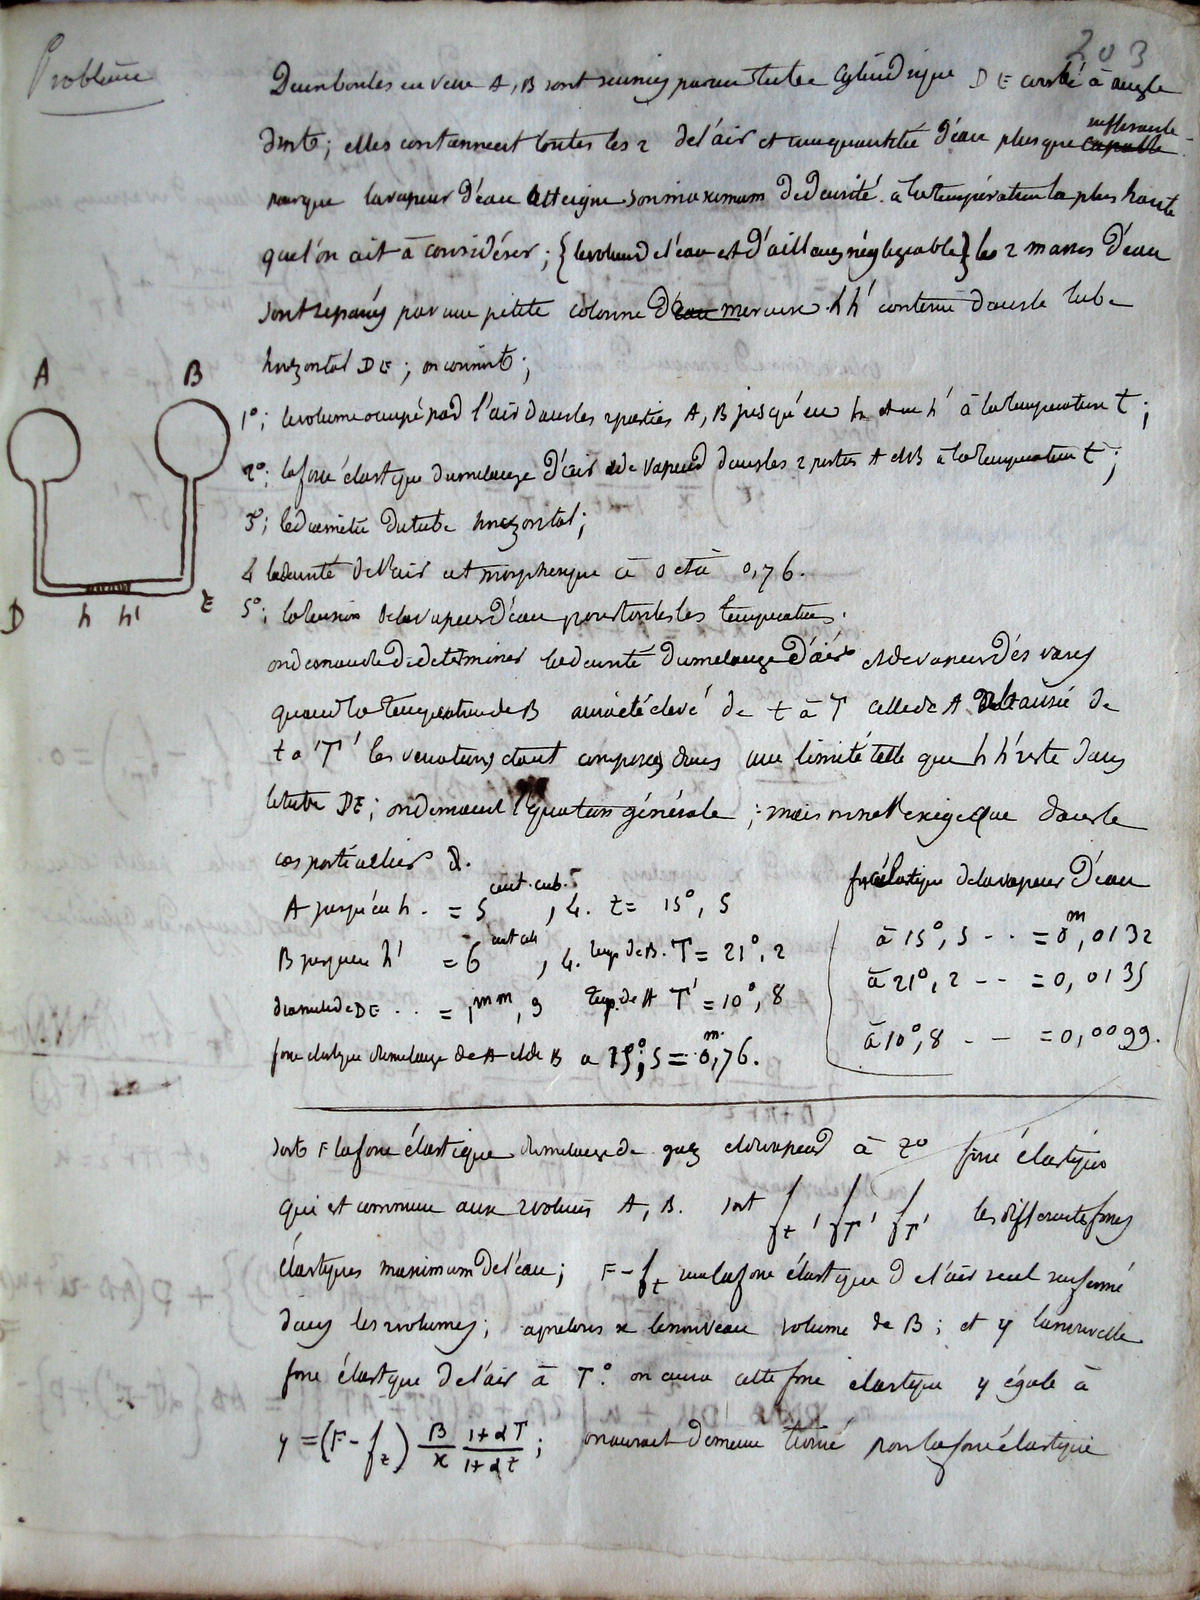 203
Problème
Deux boules en verre A, B sont réunies par un tube cylindrique DE courbé à angle
droit; elles contiennent toutes les 2 de l'air et une quantité d'eau plus que capable suffisante
pour que la vapeur d'eau atteigne son maximum de densité à la température la plus haute
que l'on ait à considérer; {le volume de l'eau est d'ailleurs négligeable} les 2 masses d'eau
sont séparées par une petite colonne d'eau mercure h h' contenu dans le tube
horizontal DE; on connoit;
A B
D h h' E
1°; le volume occupé par l'air dans les 2 parties A, B jusqu'en h et en h' à la température t;
2°; la force élastique du mélange d'air et de vapeur dans les 2 parties A et B à la température t;
3°; le diamètre du tube horizontal;
4 la densité de l'air atmosphérique à 0 et à 0,76.
5°; la tension de la vapeur d'eau pour toutes les températures.
on demande de déterminer la densité du mélange d'air et de vapeur des vases
quand la température de B aura été élevé de t à T celle de A de
t à T' les variations étant comprises dans une limite telle que h h' reste dans
le tube DE; on demande l'équation générale; mais on ne l'exige que dans le
cas particulier
A jusqu'en h. = 5 cent. cub., 4. t = 15°, 5
B jusqu'en h' = 6 cent cub, 4. temp. de B. T = 21°, 2
diamètre de DE .. = 1 mm, 9 temp. de A T' = 10°, 8
force élastique du mélange de A et de B a 15°, 5 = 0 m, 76.
force élastique de la vapeur d'eau
à 15°, 5 - - = 0 m, 0132
à 21°, 2 - - = 0, 0135
à 10°, 8 - - = 0, 0099.
soit F la force élastique du mélange de gaz et de vapeur à t° force élastique
qui est commune aux 2 volumes A, B. soit f t, f T, f T' les différentes forces
élastiques maximum de l'eau; F - f t sera la force élastique de l'air seul renfermé
dans les 2 volumes; appelons x le nouveau volume de B; et y la nouvelle
force élastique de l'air à T°. on aura cette force élastique y égale à
y = (F - f t) B/x (1+αT)/(1+αt); on aurait de même trouvé pour la force élastique